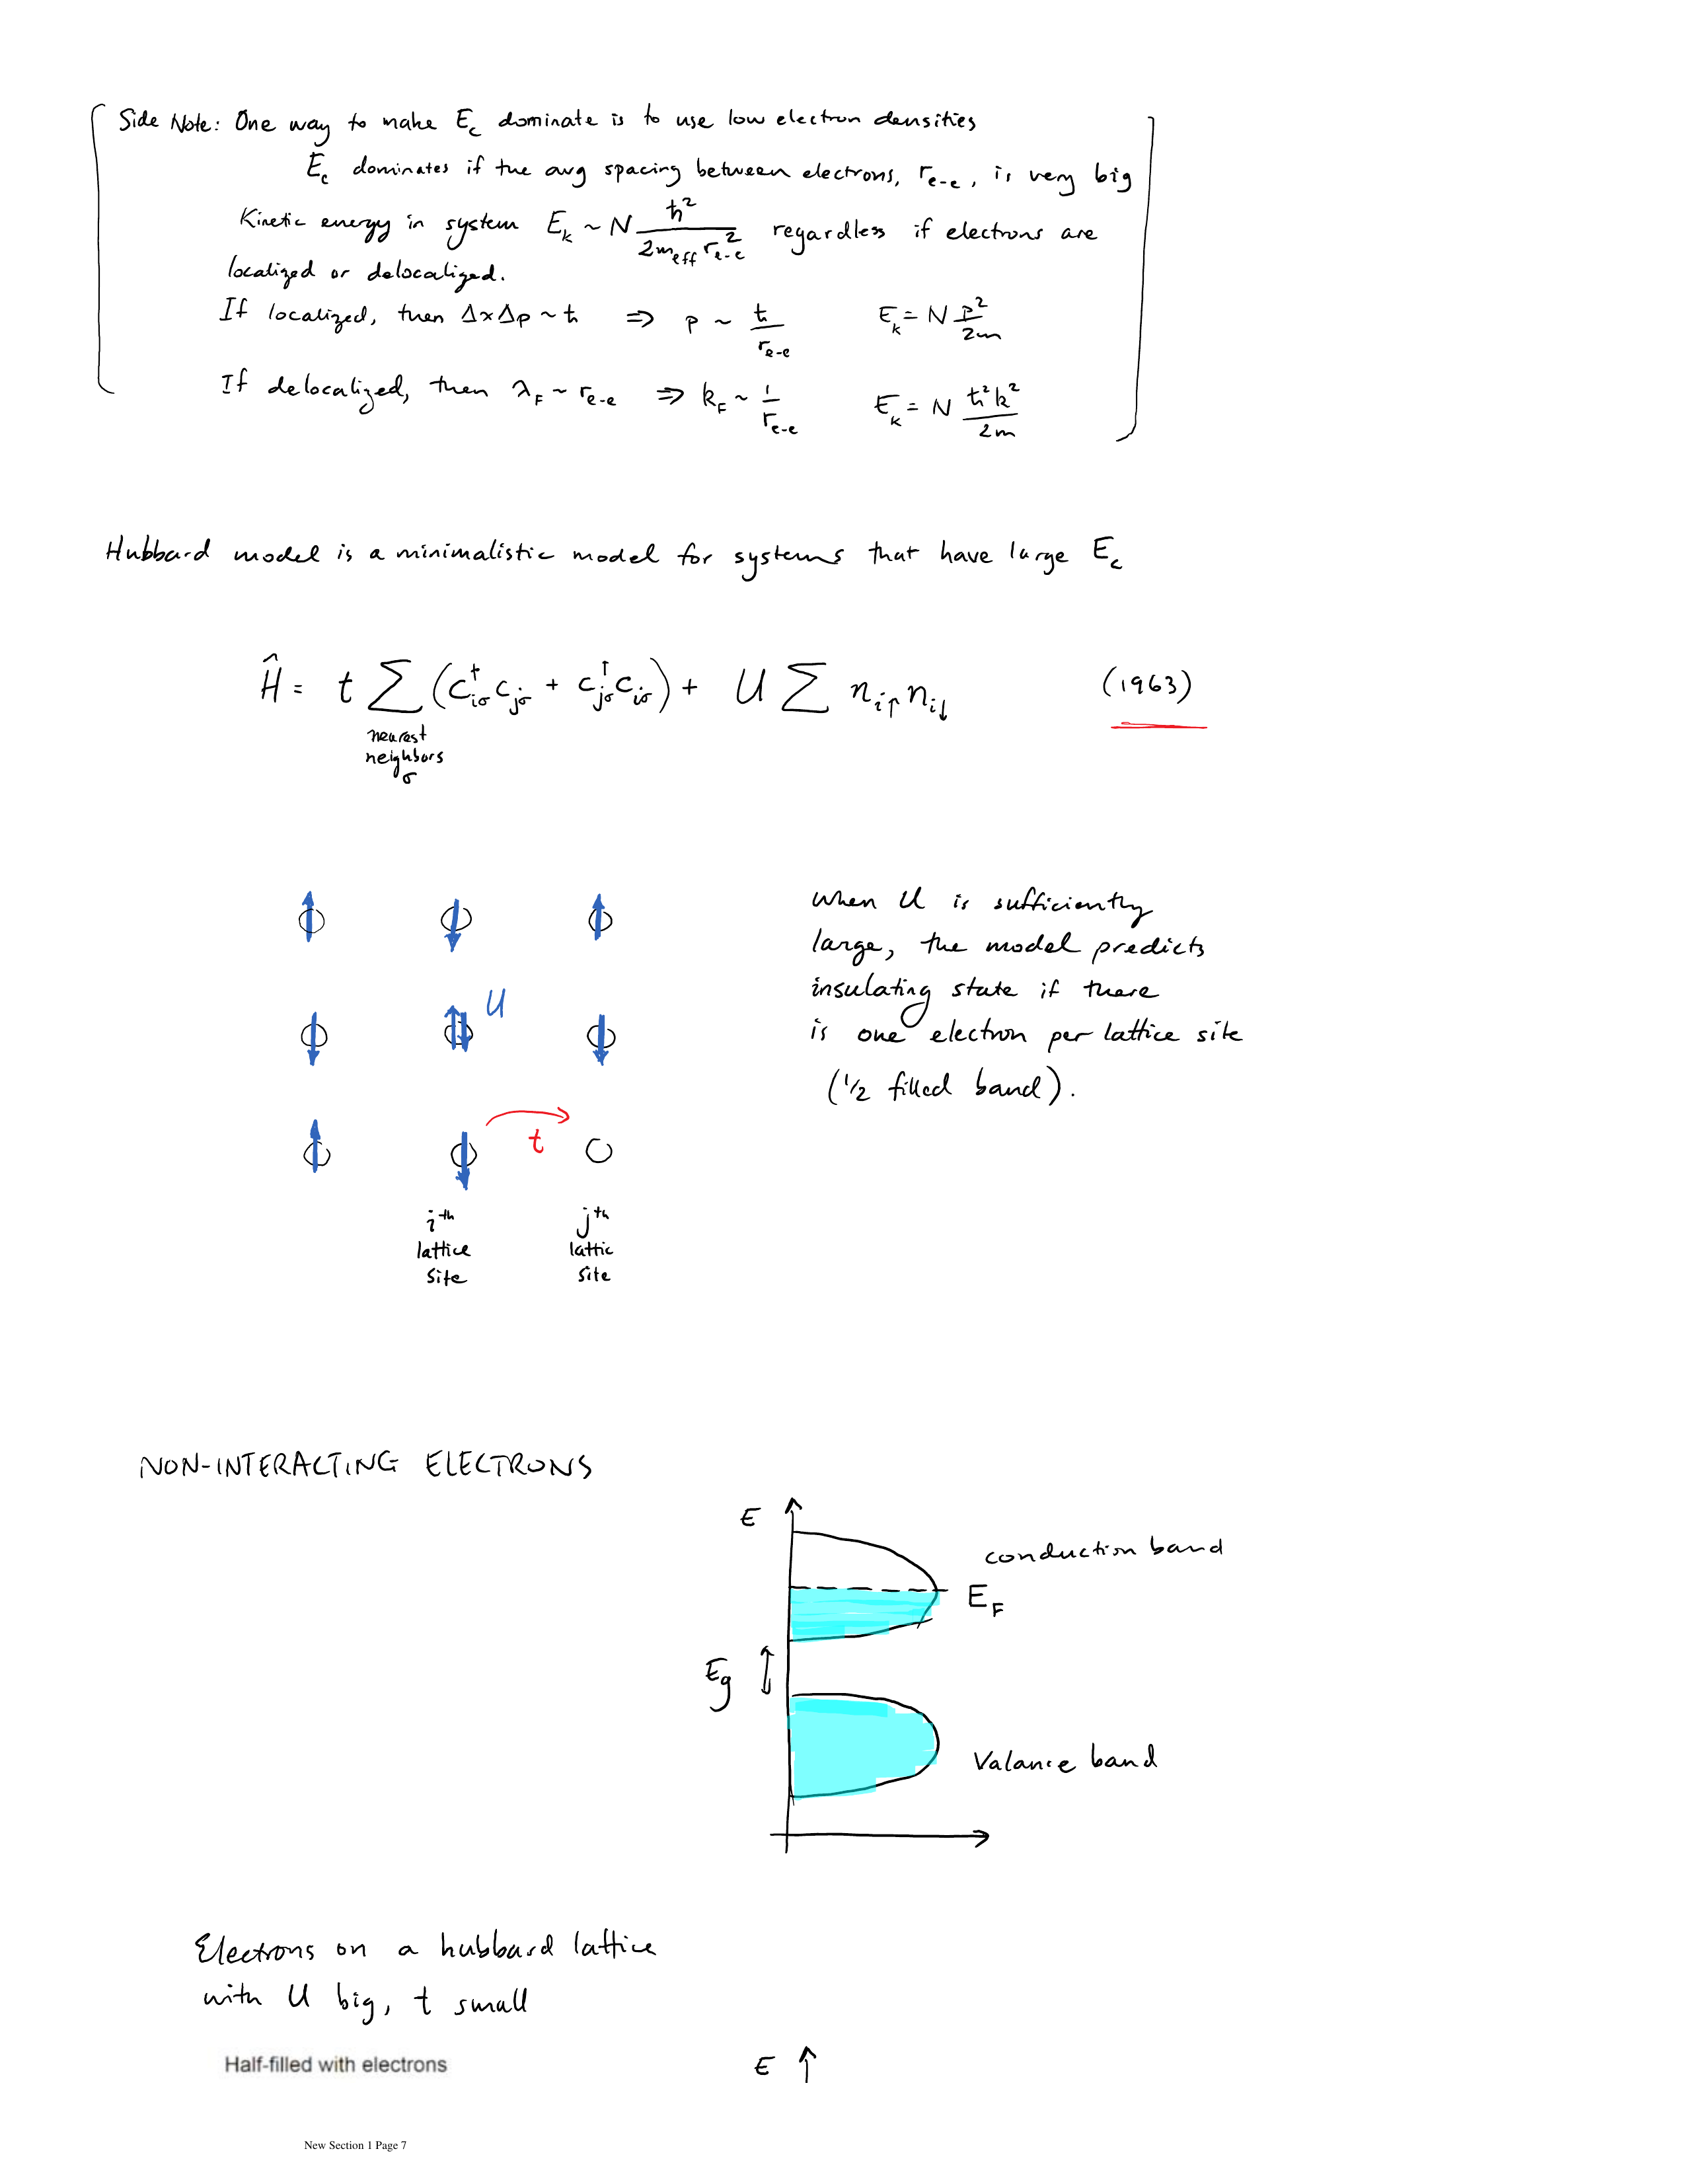 Side Note: One way to make E_c dominate is to use low electron densities
E_c dominates if the avg spacing between electrons, r_e-e, is very big
Kinetic energy in system E_k ~ N ℏ² / 2m_eff r_e-e² regardless if electrons are
localized or delocalized.
If localized, then Δx Δp ~ ℏ ⇒ p ~ ℏ / r_e-e E_k = N p² / 2m
If delocalized, then λ_F ~ r_e-e ⇒ k_F ~ 1 / r_e-e E_k = N ℏ²k² / 2m
Hubbard model is a minimalistic model for systems that have large E_c
Ĥ = t ∑ (c†_iσ c_jσ + c†_jσ c_iσ) + U ∑ n_i↑ n_i↓ (1963)
nearest
neighbors
σ
U
t
i^th
lattice
site
j^th
lattic
site
When U is sufficiently
large, the model predicts
insulating state if there
is one electron per lattice site
(1/2 filled band).
NON-INTERACTING ELECTRONS
E
conduction band
E_F
E_g
Valance band
Electrons on a hubbard lattice
with U big, t small
Half-filled with electrons
E ↑
New Section 1 Page 7